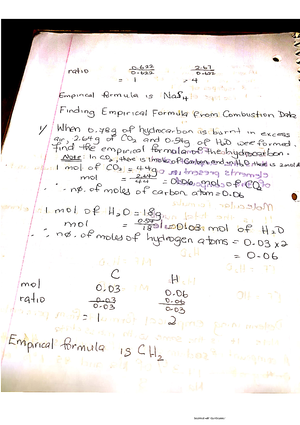 ratio 0.622/0.622 2.67/0.622
= 1 = 4
Empirical formula is NaF4
Finding Empirical Formula from Combustion Data
1/ When 0.78g of hydrocarbon is burnt in excess
air, 2.64g of CO2 and 0.54g of H2O were formed.
Find the empirical formula of the hydrocarbon.
Note: In CO2, there is
1 mol of CO2 = 44g
mol = 2.64/44 = 0.06 mol of CO2
∴ no. of moles of carbon atoms = 0.06
1 mol of H2O = 18g
mol = 0.54/18 = 0.03 mol of H2O
∴ no. of moles of hydrogen atoms = 0.03 x 2
= 0.06
C H
mol 0.03 0.06
ratio 0.03/0.03 0.06/0.03
= 1 2
Empirical formula is CH2